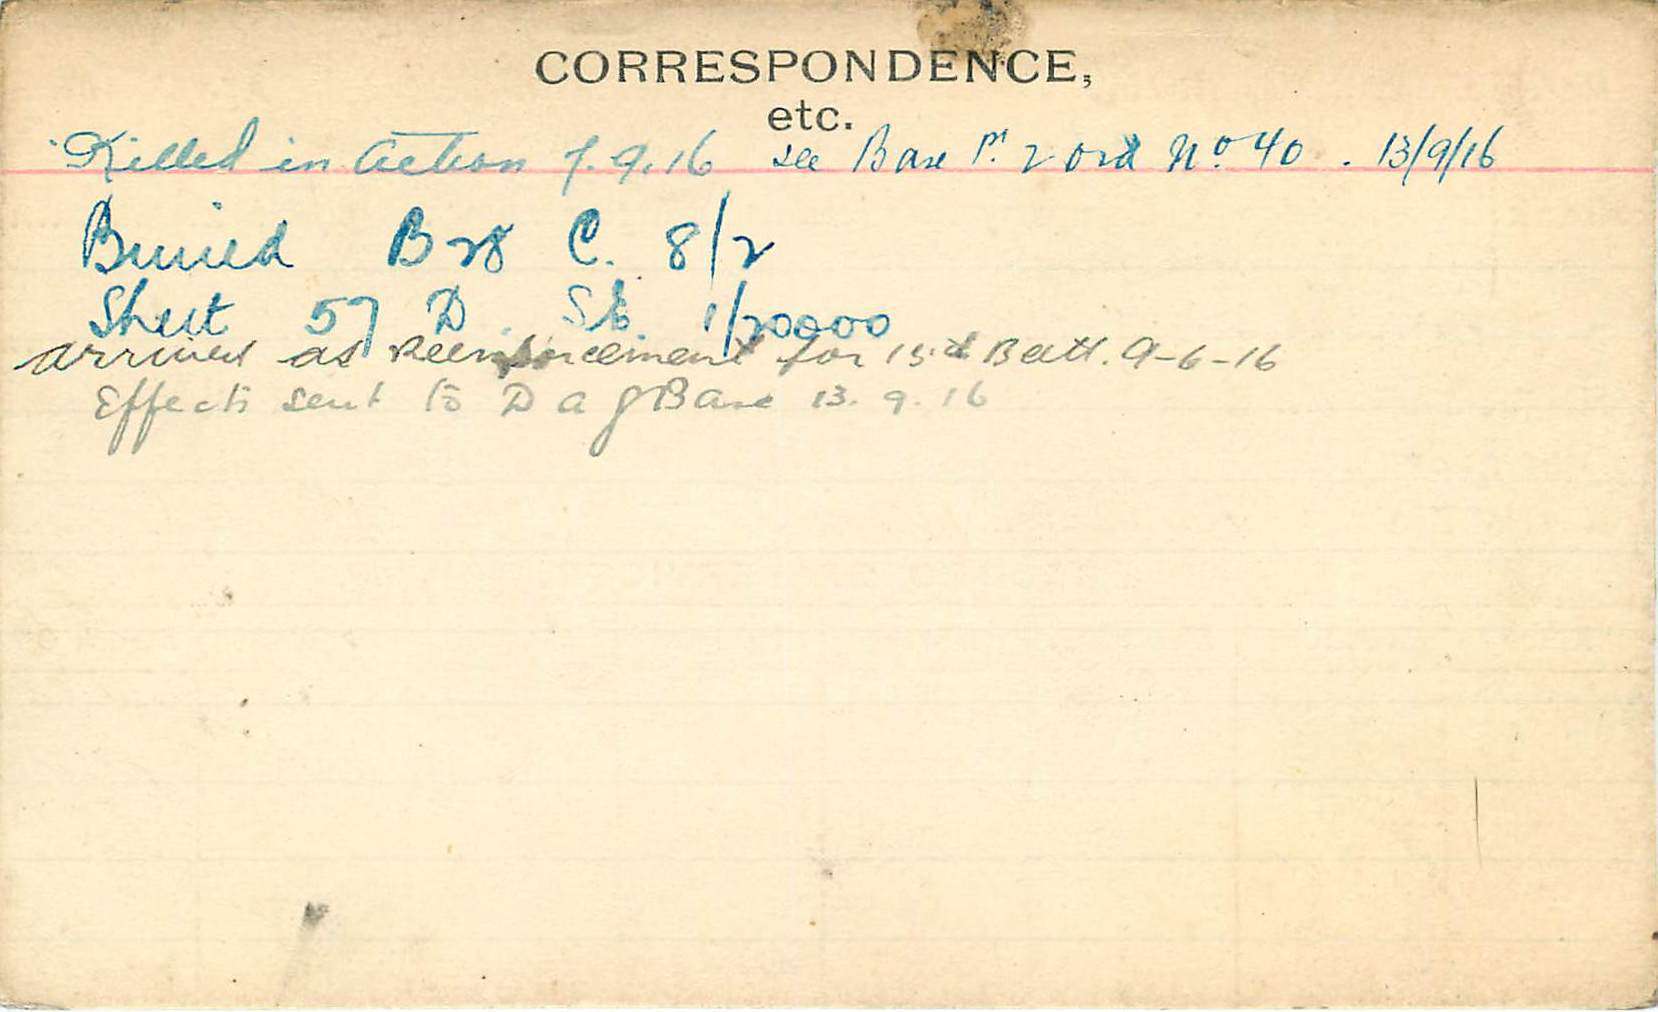 CORRESPONDENCE,
etc.
Killed in Action 7.9.16 see Base Pt 2 ord No 40. 13/9/16
Buried B 28 C. 8/2
Sheet 57 D SE 1/20000
arrived as Reenforcement for 15th Batt. 9-6-16
Effects sent to D a g Base 13.9.16